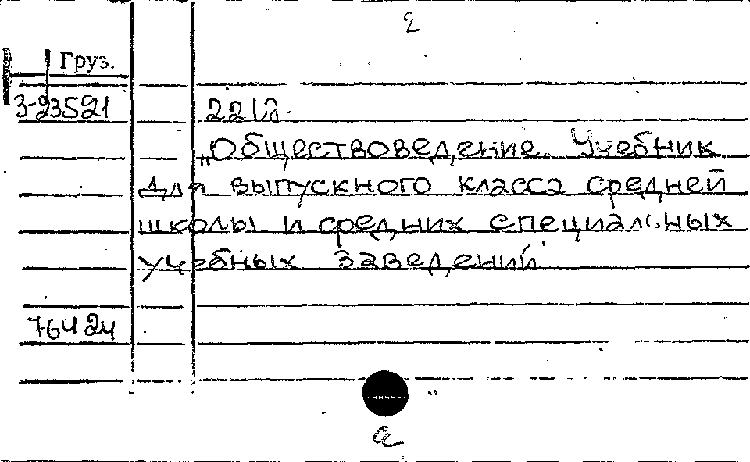 Груз.
3-23521
„Обществоведение. Учебник
для выпускного класса средней
школы и средних специальных
учебных заведений.
76424